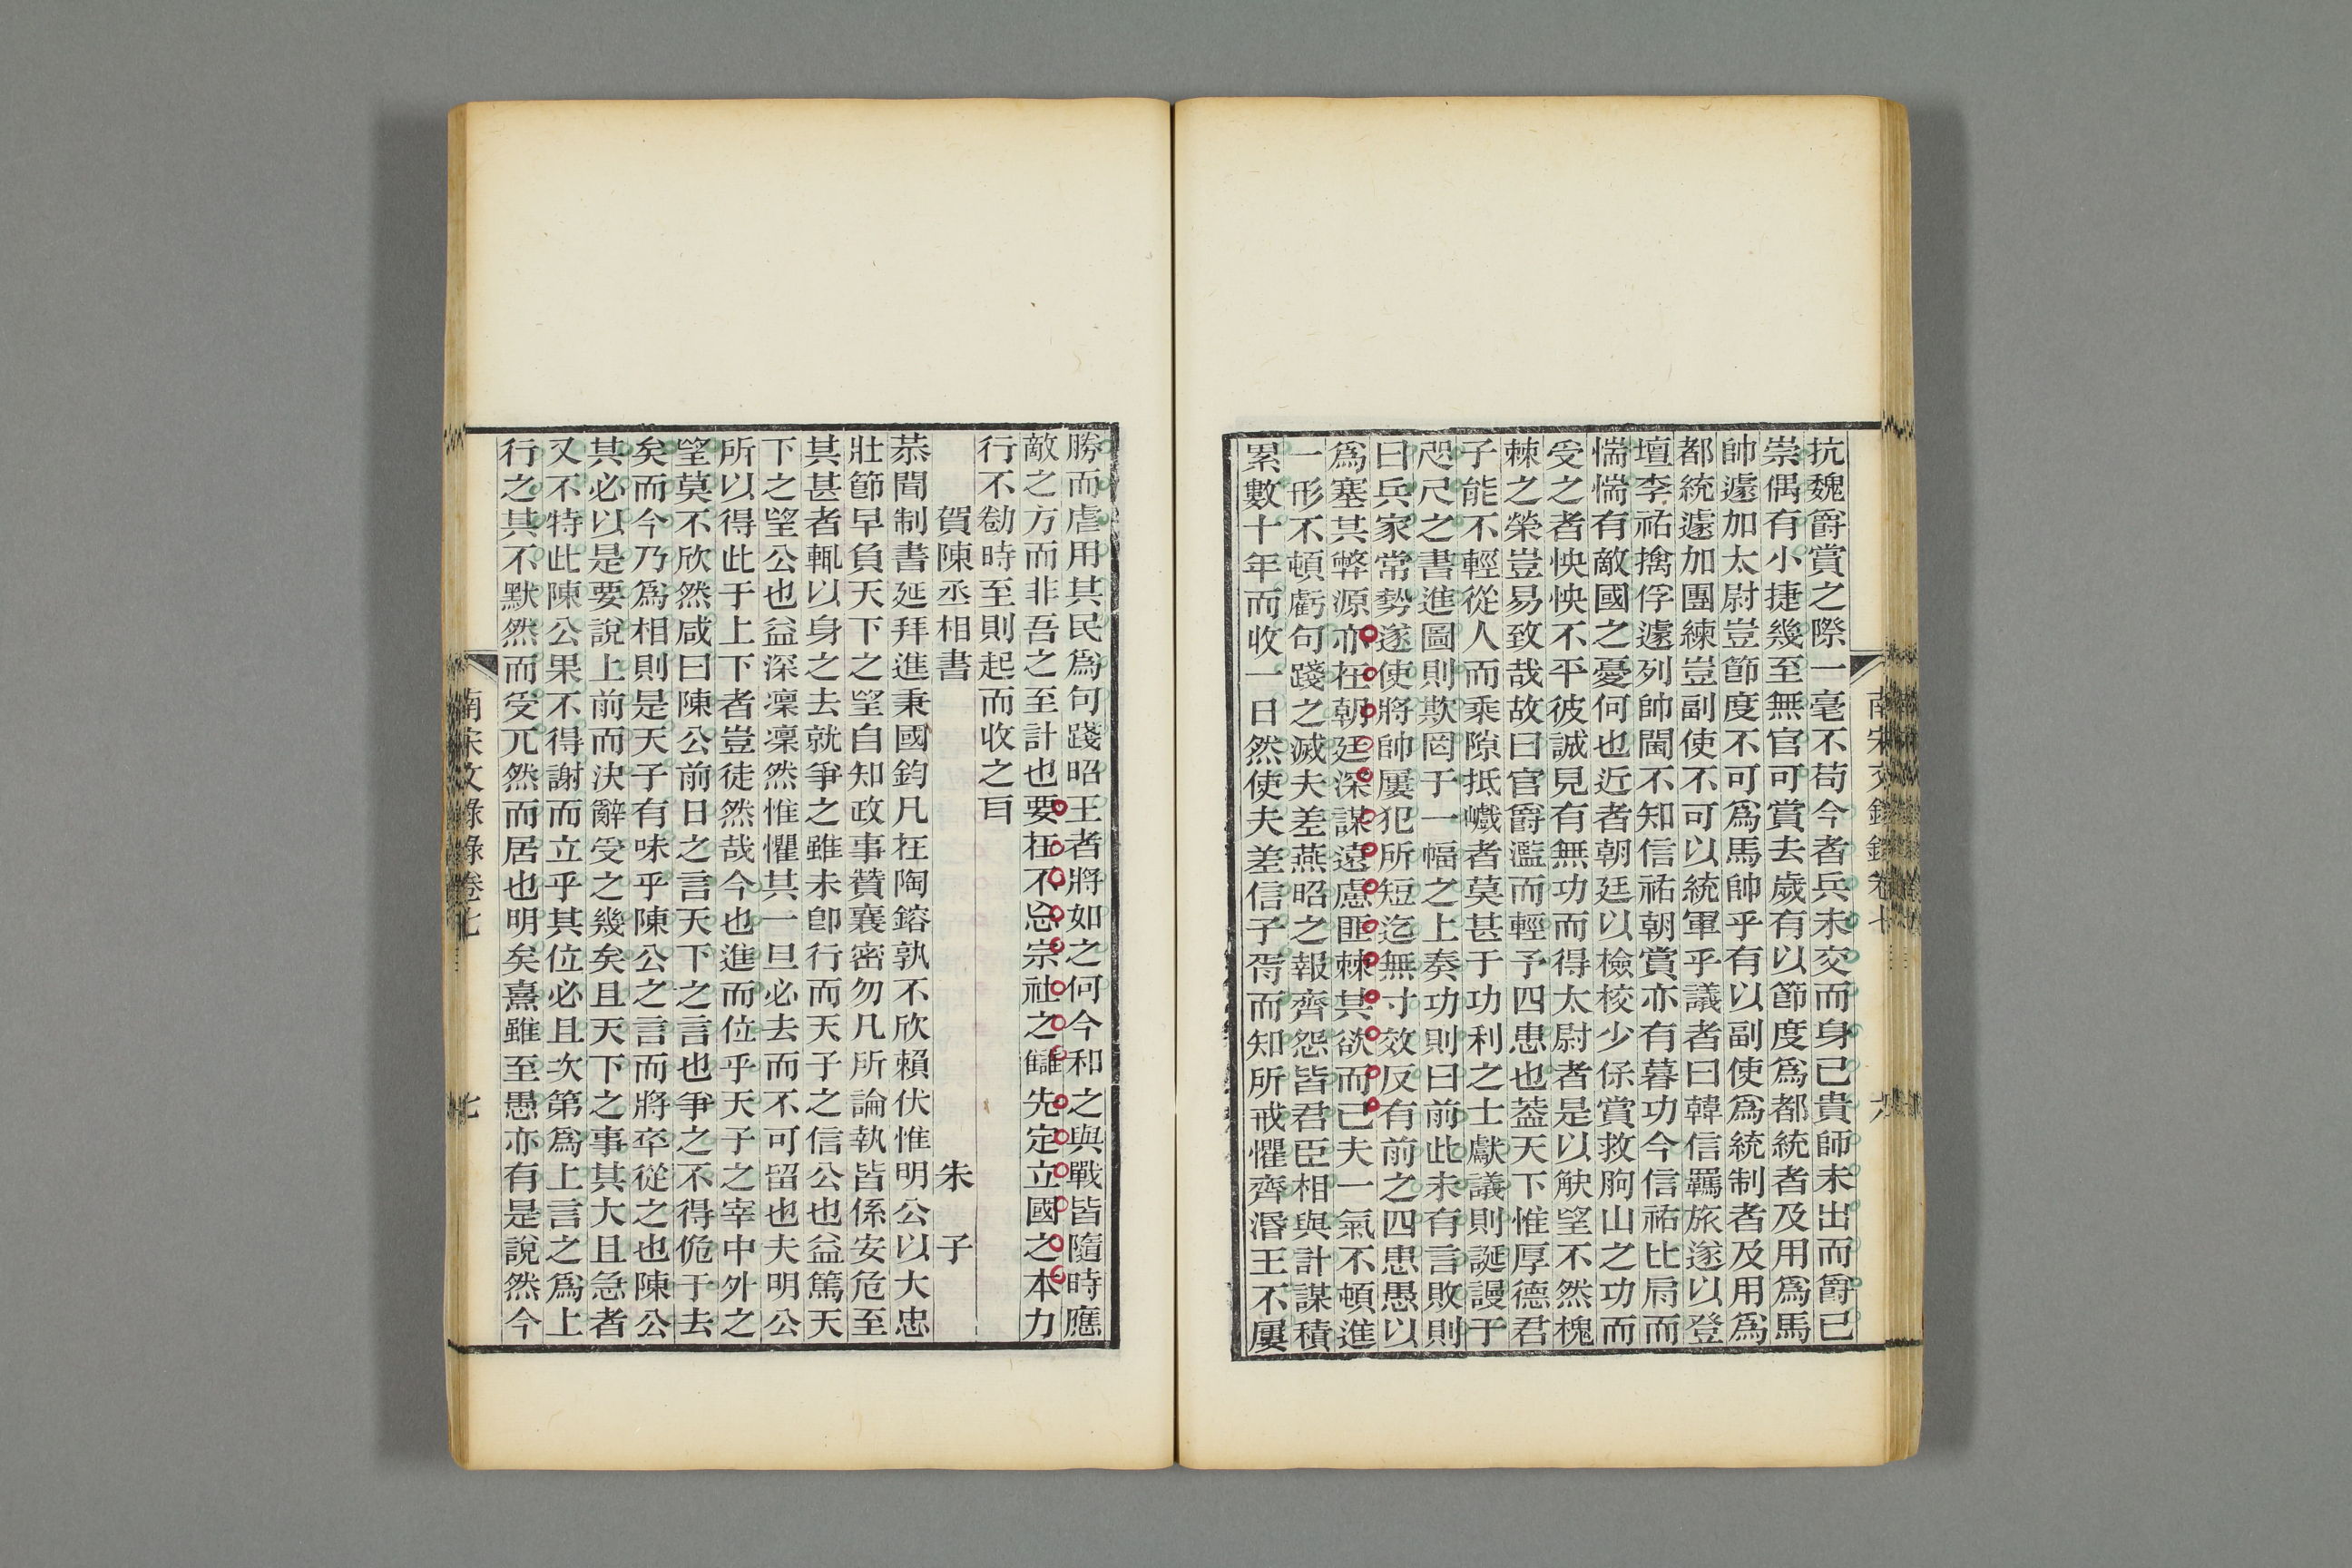 抗魏爵賞之際一毫不苟今者兵未交而身已貴師未出而爵已
崇偶有小捷幾至無官可賞去歲有以節度為都統者及用爲馬
帥遽加太尉豈節度不可爲馬帥乎有以副使爲統制者及用爲
都統遽加團練豈副使不可以統軍乎議者曰韓信羈旅遂以登
壇李祐擒俘遽列帥閫不知信祐朝賞亦有暮功今信祐比肩而
惴惴有敵國之憂何也近者朝廷以檢校少保賞救朐山之功而
受之者怏怏不平彼誠見有無功而得太尉者是以觖望不然槐
棘之榮豈易致哉故曰官爵濫而輕予四患也葢天下惟厚德君
子能不輕從人而乘隙抵巇者莫甚于功利之士獻議則誕謾于
咫尺之書進圖則欺罔于一幅之上奏功則曰前此未有言敗則
曰兵家常勢遂使將帥屢犯所短迄無寸效反有前之四患愚以
爲塞其弊源亦在朝廷深謀遠慮匪棘其欲而已夫一氣不頓進
一形不頓虧句踐之滅夫差燕昭之報齊怨皆君臣相與計謀積
累數十年而收一日然使夫差信子胥而知所戒懼齊湣王不屢
南宋文錄錄卷七
六
勝而虐用其民爲句踐昭王者將如之何今和之與戰皆隨時應
敵之方而非吾之至計也要在不忘宗社之讎先定立國之本力
行不勌時至則起而收之耳
賀陳丞相書 朱子
恭聞制書延拜進秉國鈞凡在陶鎔孰不欣賴伏惟明公以大忠
壯節早負天下之望自知政事贊襄密勿凡所論執皆係安危至
其甚者輒以身之去就爭之雖未卽行而天子之信公也益篤天
下之望公也益深凜凜然惟懼其一旦必去而不可留也夫明公
所以得此于上下者豈徒然哉今也進而位乎天子之宰中外之
望莫不欣然咸曰陳公前日之言天下之言也爭之不得俛于去
矣而今乃爲相則是天子有味乎陳公之言而將卒從之也陳公
其必以是要說上前而決辭受之幾矣且天下之事其大且急者
又不特此陳公果不得謝而立乎其位必且次第爲上言之爲上
行之其不默然而受兀然而居也明矣熹雖至愚亦有是說然今
南宋文錄錄卷七
七